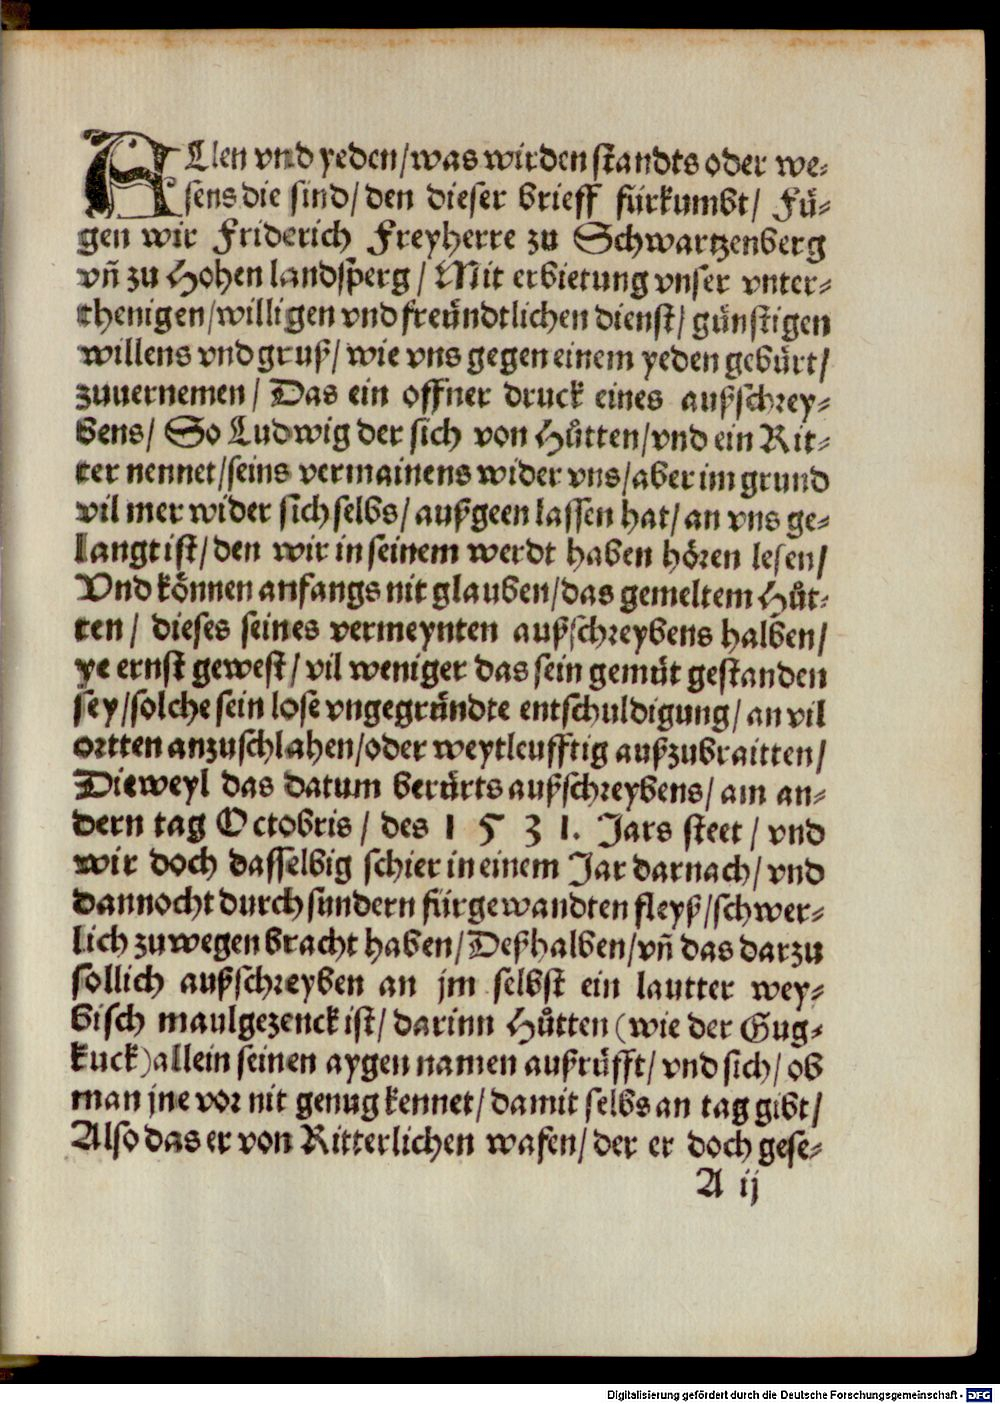 ALlen vnd yeden/was wirden standts oder we⸗
sens die sind/ den dieser brieff fürkumbt/ Fü⸗
gen wir Friderich Freyherre zu Schwartzenberg
vñ zu Hohen landsperg / Mit erbietung vnser vnter⸗
thenigen/willigen vnd freündtlichen dienst/ günstigen
willens vnd gruß/ wie vns gegen einem yeden gebürt/
zuuernemen / Das ein offner druck eines außschrey⸗
bens/ So Ludwig der sich von Hůtten/vnd ein Rit⸗
ter nennet/seins vermainens wider vns/aber im grund
vil mer wider sich selbs/ außgeen lassen hat/ an vns ge⸗
langt ist/den wir in seinem werdt haben hören lesen/
Vnd können anfangs nit glauben/das gemeltem Hůt⸗
ten / dieses seines vermeynten außschreybens halben/
ye ernst gewest/ vil weniger das sein gemüt gestanden
sey/solche sein lose vngegründte entschuldigung/ an vil
ortten anzuschlahen/oder weytleufftig außzubraitten/
Dieweyl das datum berürts außschreybens/ am an⸗
dern tag Octobris / des 1 5 3 1. Jars steet / vnd
wir doch dasselbig schier in einem Jar darnach/ vnd
dannocht durch sundern fürgewandten fleyß/schwer⸗
lich zuwegen bracht haben/Deßhalben/vñ das darzu
sollich außschreyben an jm selbst ein lautter wey⸗
bisch maulgezenck ist/ darinn Hůtten (wie der Gug⸗
kuck)allein seinen aygen namen außrüfft/ vnd sich/ ob
man jne vor nit genug kennet/ damit selbs an tag gibt/
Also das er von Ritterlichen wafen/ der er doch gese⸗
A ij
Digitalisierung gefördert durch die Deutsche Forschungsgemeinschaft - DFG